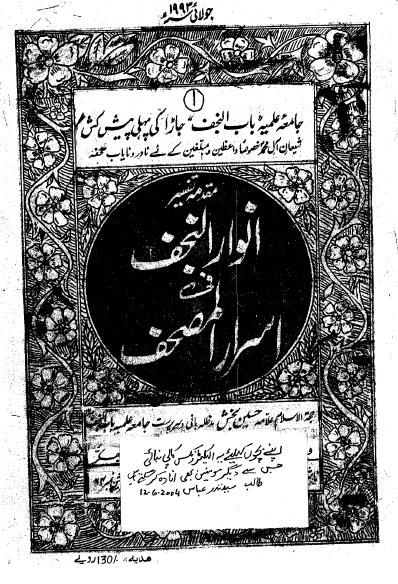 جولائی ۱۹۹۳ء
۱
جامعہ علمیہ باب النجف جاڑا کی پہلی پیش کش
شیعان آل محمد خصوصاً واعظین و مبلغین کے لئے نادر و نایاب تحفہ
مقدمہ تفسیر
انوار النجف
فی
اسرار المصحف
حجۃ الاسلام علامہ حسین بخش مدظلہ بانی و سرپرست جامعہ علمیہ باب النجف
اپنے بچوں کیلئے یہ الیکٹرونکس کاپی بنائی
جس سے دیگر مومنین بھی
طالب سید نذر عباس 12-6-2004
ھدیہ =/130 روپے